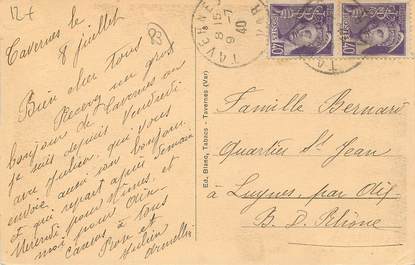 12+
83
Tavernes le
8 juillet
Bien cher tous
Recevez un gros
bonjour de Tavernes où
je suis depuis Vendredi
avec Julien, qui vous
envoie aussi son bonjour
et qui repart après demain
Mercredi pour Nîmes, et
moi pour Aix.
à tous
Rose et
Julien
Ed. Blanc, Tabacs - Tavernes (Var)
TAVERNES
8 15
9 - 7
40
VAR
POSTES
Famille Bernard
Quartier St Jean
à Luynes, par Aix
B. d. Rhône